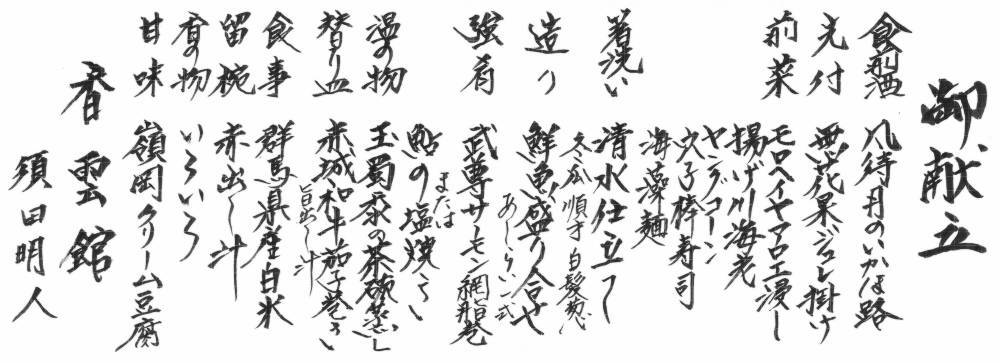 御献立
食前酒 八待月のいかほ路
先付 無花果ジュレ掛け
前菜 モロヘイヤマロエ浸し
揚げ川海老
ヤングコーン
穴子棒寿司
海藻麺
箸洗い 清水仕立て
冬瓜 順才 白髪葱
造り 鮮魚盛り合せ
あしらい一式
強肴 武尊サーモン網脂巻
または
鮎の塩焼き
温の物 玉蜀黍の茶碗蒸し
替り皿 赤城和牛茄子巻き
旨出し汁
食事 群馬県産白米
留椀 赤出し汁
香の物 いろいろ
甘味 嶺岡クリーム豆腐
香雲館
須田明人